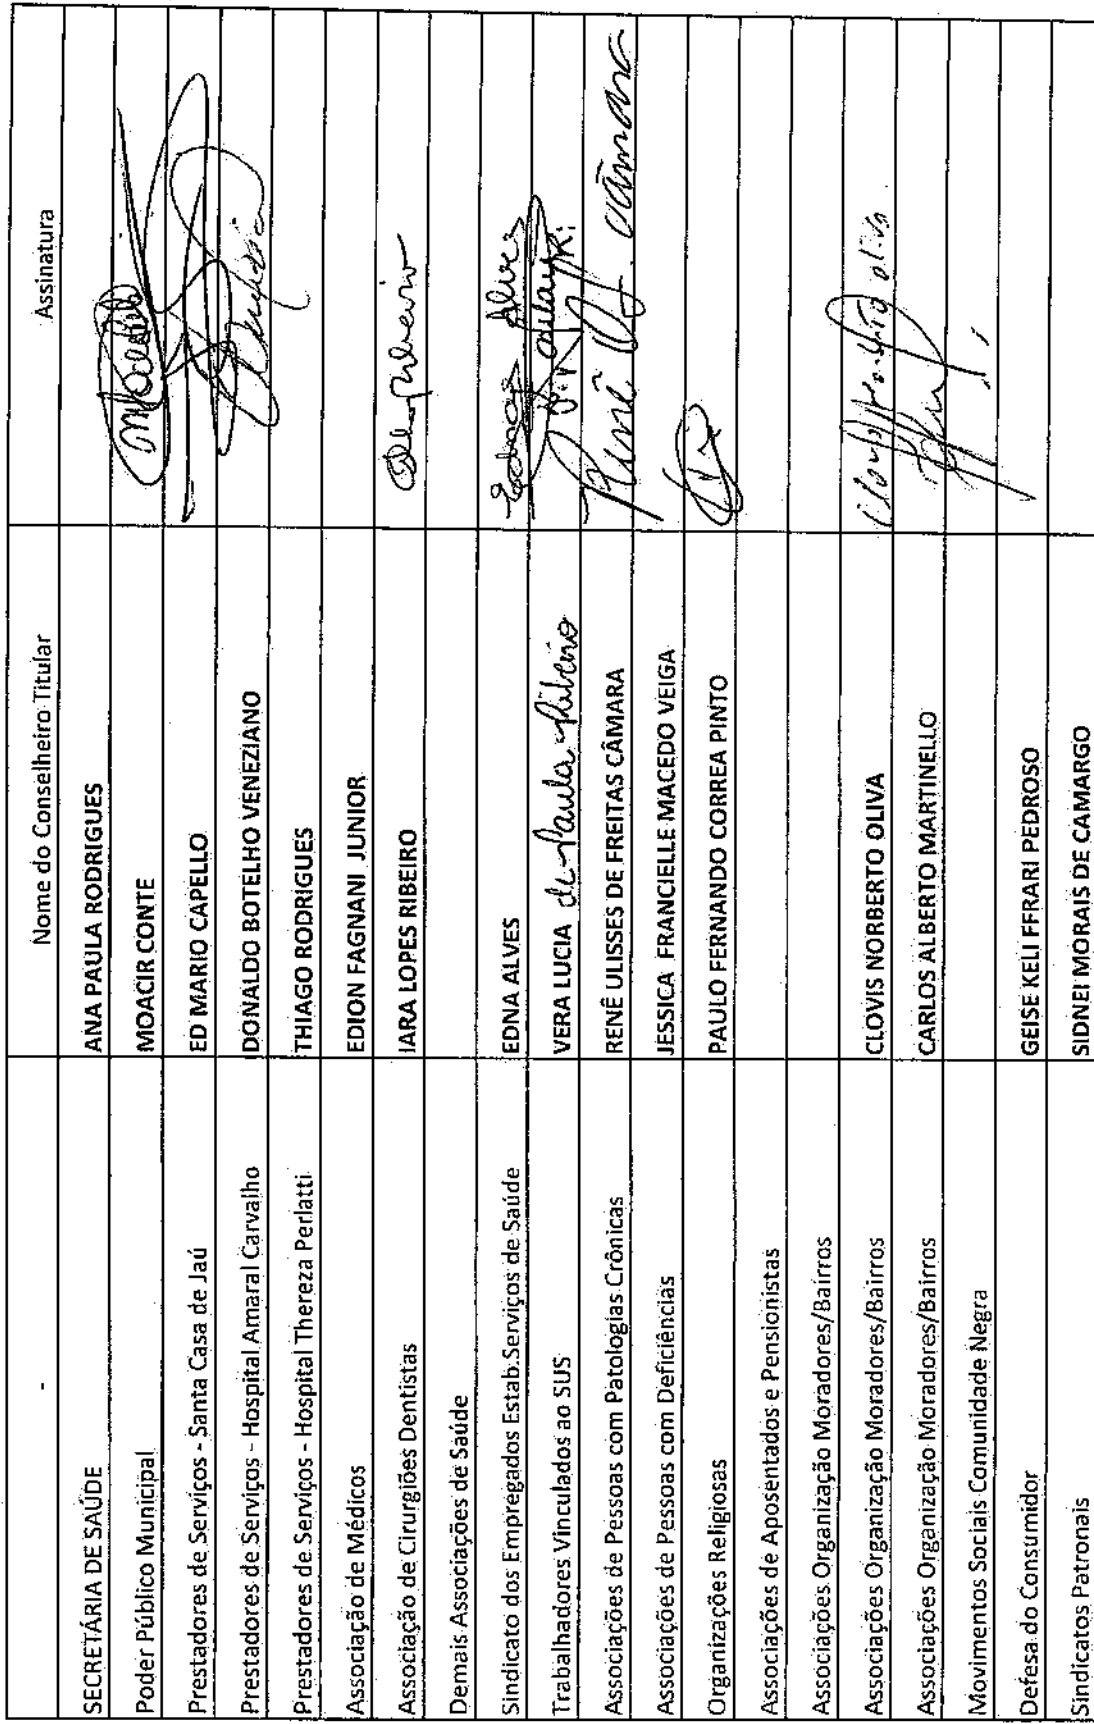 - Nome do Conselheiro Titular Assinatura
SECRETÁRIA DE SAÚDE ANA PAULA RODRIGUES
Poder Público Municipal MOACIR CONTE
Prestadores de Serviços - Santa Casa de Jaú ED MARIO CAPELLO
Prestadores de Serviços - Hospital Amaral Carvalho DONALDO BOTELHO VENEZIANO
Prestadores de Serviços - Hospital Thereza Perlatti THIAGO RODRIGUES
Associação de Médicos EDION FAGNANI JUNIOR
Associação de Cirurgiões Dentistas IARA LOPES RIBEIRO
Demais Associações de Saúde
Sindicato dos Empregados Estab.Serviços de Saúde EDNA ALVES Edna Alves
Trabalhadores Vinculados ao SUS VERA LUCIA de Paula Ribeiro
Associações de Pessoas com Patologias Crônicas RENÊ ULISSES DE FREITAS CÂMARA Renê U. F. Câmara
Associações de Pessoas com Deficiências JESSICA FRANCIELLE MACEDO VEIGA
Organizações Religiosas PAULO FERNANDO CORREA PINTO
Associações de Aposentados e Pensionistas
Associações Organização Moradores/Bairros
Associações Organização Moradores/Bairros CLOVIS NORBERTO OLIVA Clovis Norberto Oliva
Associações Organização Moradores/Bairros CARLOS ALBERTO MARTINELLO
Movimentos Sociais Comunidade Negra
Defesa do Consumidor GEISE KELI FFRARI PEDROSO
Sindicatos Patronais SIDNEI MORAIS DE CAMARGO